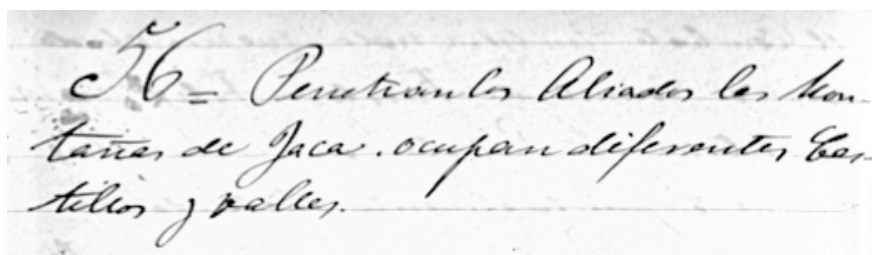 56= Penetran los Aliados las Mon-
tañas de Jaca. ocupan diferentes Cas-
tillos y valles.